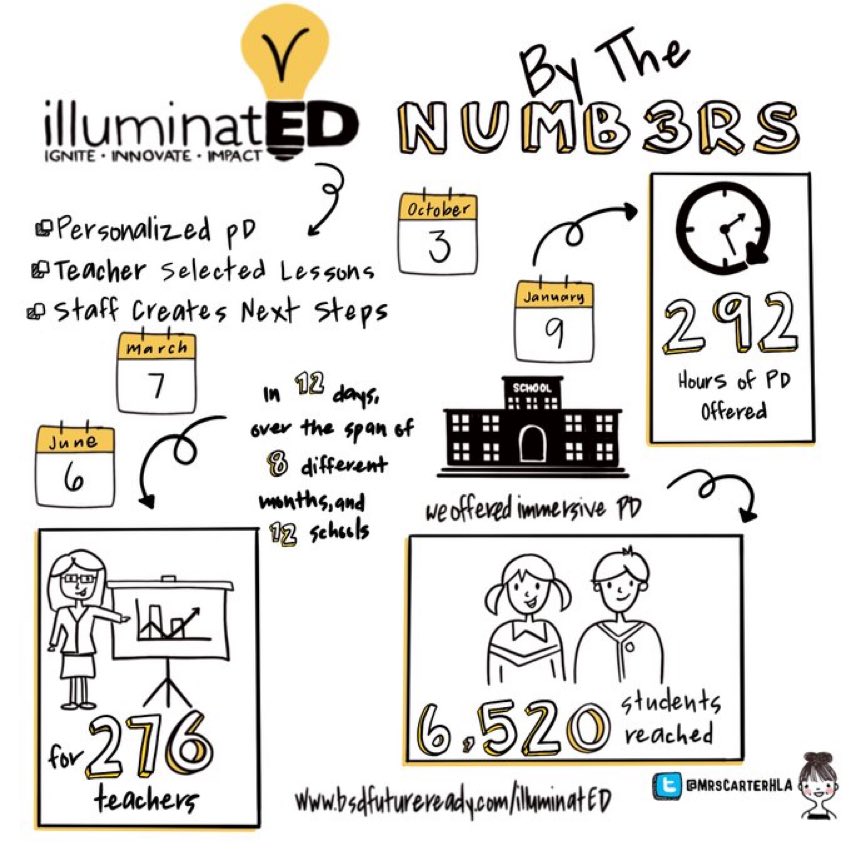 illuminatED
IGNITE • INNOVATE • IMPACT
By The
NUMB3RS
Personalized PD
Teacher Selected Lessons
Staff Creates Next Steps
October
3
January
9
March
7
June
6
292
Hours of PD
Offered
In 12 days,
over the span of
8 different
months, and
12 schools
SCHOOL
we offered immersive PD
for 276
teachers
6,520 students
reached
www.bsdfutureready.com/illuminatED
@MRSCARTERHLA